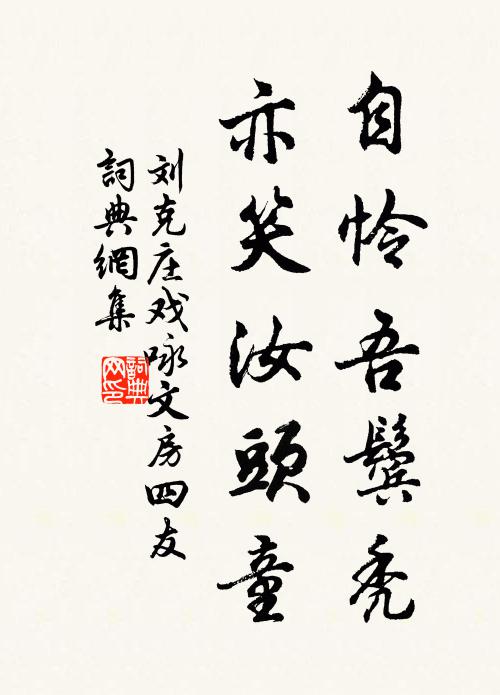 自怜吾鬓秃
亦笑汝頭童
刘克庄戏咏文房四友
詞典網集
詞典
网印